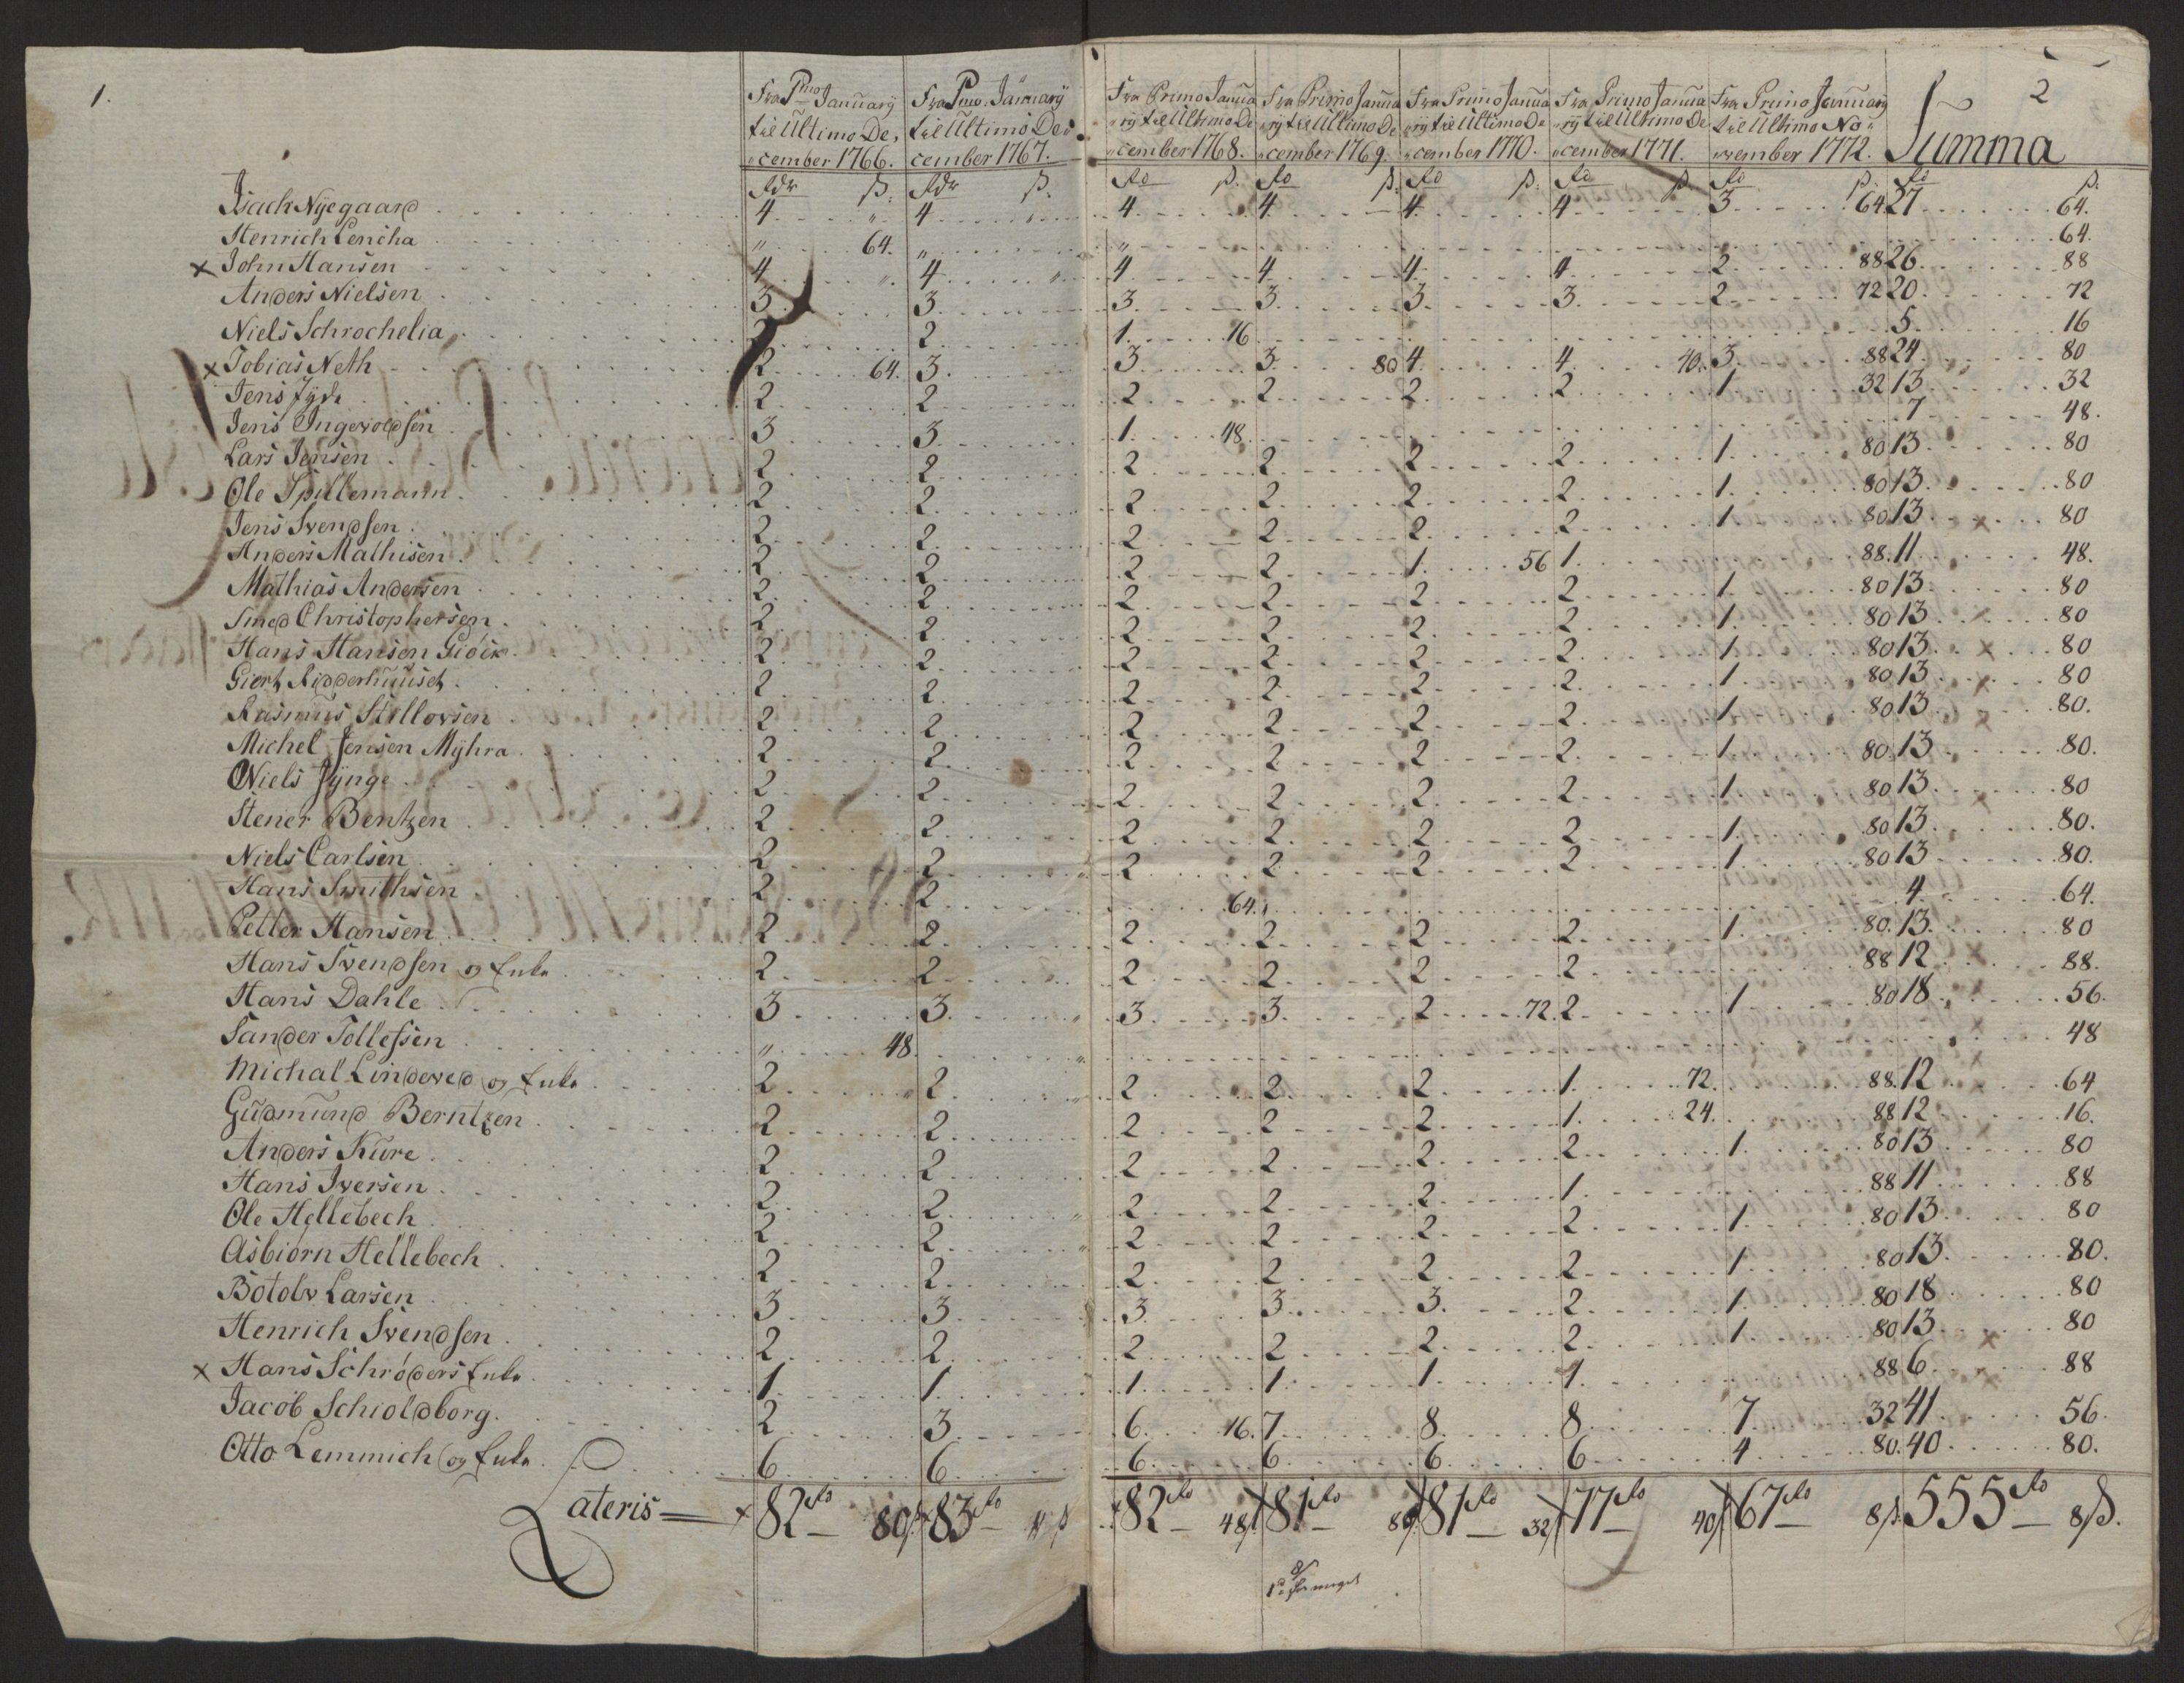 1.
2
Fra Pmo Januarij til Ultimo De,,cember 1766. Fra Pmo. Januarij til Ultimo De,,cember 1767. Fra Primo Janua,,rij til Ultimo De,,cember 1768. Fra Primo Janua,,rij til Ultimo De,,cember 1769. Fra Primo Janua,,rij til Ultimo De,,cember 1770. Fra Primo Janua,,rij til Ultimo De,,cember 1771. Fra Primo Januarij til Ultimo No,,vember 1772. Summa
Rdr ß. Rdr ß. Rd ß. Rd ß. Rd ß. Rd ß. Rd ß. Rd ß.
Isach Nyegaard 4 " 4 " 4 4 4 4 3 64 27 64.
Henrich Lencha " 64. " " 64.
x John Hansen 4 " 4 " 4 4 4 4 2 88 26 88
Anders Nielsen 3 3 3 3 3 3 2 72 20 72
Niels Schrochelia 2 2 1 16 5 16
x Tobias Neth 2 64. 3 3 3 80 4 4 40. 3 88 24 80
Jens Jyde 2 2 2 2 2 2 1 32 13 32
Jens Ingevoldsen 3 3 1 48 7 48.
Lars Jensen 2 2 2 2 2 2 1 80 13 80
Ole Spillemann 2 2 2 2 2 2 1 80 13 80
Jens Svendsen 2 2 2 2 2 2 1 80 13 80
Anders Mathisen 2 2 2 2 1 56 1 88. 11 48.
Mathias Andersen 2 2 2 2 2 2 1 80 13 80
Smed Christophersen 2 2 2 2 2 2 1 80 13 80
Hans Hansen Giöck 2 2 2 2 2 2 1 80 13 80
Giert Ridderhuuset 2 2 2 2 2 2 1 80 13 80
Rasmus Stillovsen 2 2 2 2 2 2 1 80 13 80.
Michel Jensen Myhra 2 2 2 2 2 2 1 80. 13 80.
Niels Jynge 2 2 2 2 2 2 1 80 13 80
Stener Bentzen 2 2 2 2 2 2 1 80 13 80.
Niels Carlsen 2 2 2 2 2 2 1 80 13 80.
Hans Smithsen 2 2 64. 4 64.
Petter Hansen 2 2 2 2 2 2 1 80. 13. 80
Hans Svendsen og Enke 2 2 2 2 2 2 88 12 88.
Hans Dahle 3 3 3 3 2 72. 2 1 80 18 56.
Sander Tollefsen " 48. 48
Michal Lindeved og Enke 2 2 2 2 2 1 72. 88. 12 64
Gudmund Berntzen 2 2 2 2 2 1 24. 88 12 16.
Anders Kure 2 2 2 2 2 2 1 80 13 80
Hans Iversen 2 2 2 2 2 1 88 11 88
Ole Hellebech 2 2 2 2 2 2 1 80 13 80
Asbiörn Hellebech 2 2 2 2 2 2 1 80 13. 80.
Botolv Larsen 3 3 3 3 3 2 1 80 18 80
Henrich Svendsen 2 2 2 2 2 2 1 80 13 80
x Hans Schröders Enke 1 1 1 1 1 1 88 6 88
Jacob Schioldborg. 2 3 6 16. 7 8 8 7 32 41 56.
Otto Lemmich og Enke 6 6 6 6 6 6 4 80. 40 80.
Lateris x 82 Rd 80 ß x 83 Rd " ß x 82 Rd 48 ß x 81 Rd 80 ß x 81 Rd 32 ß x 77 Rd 40 ß x 67 Rd 8 ß. 555 Rd 8 ß.